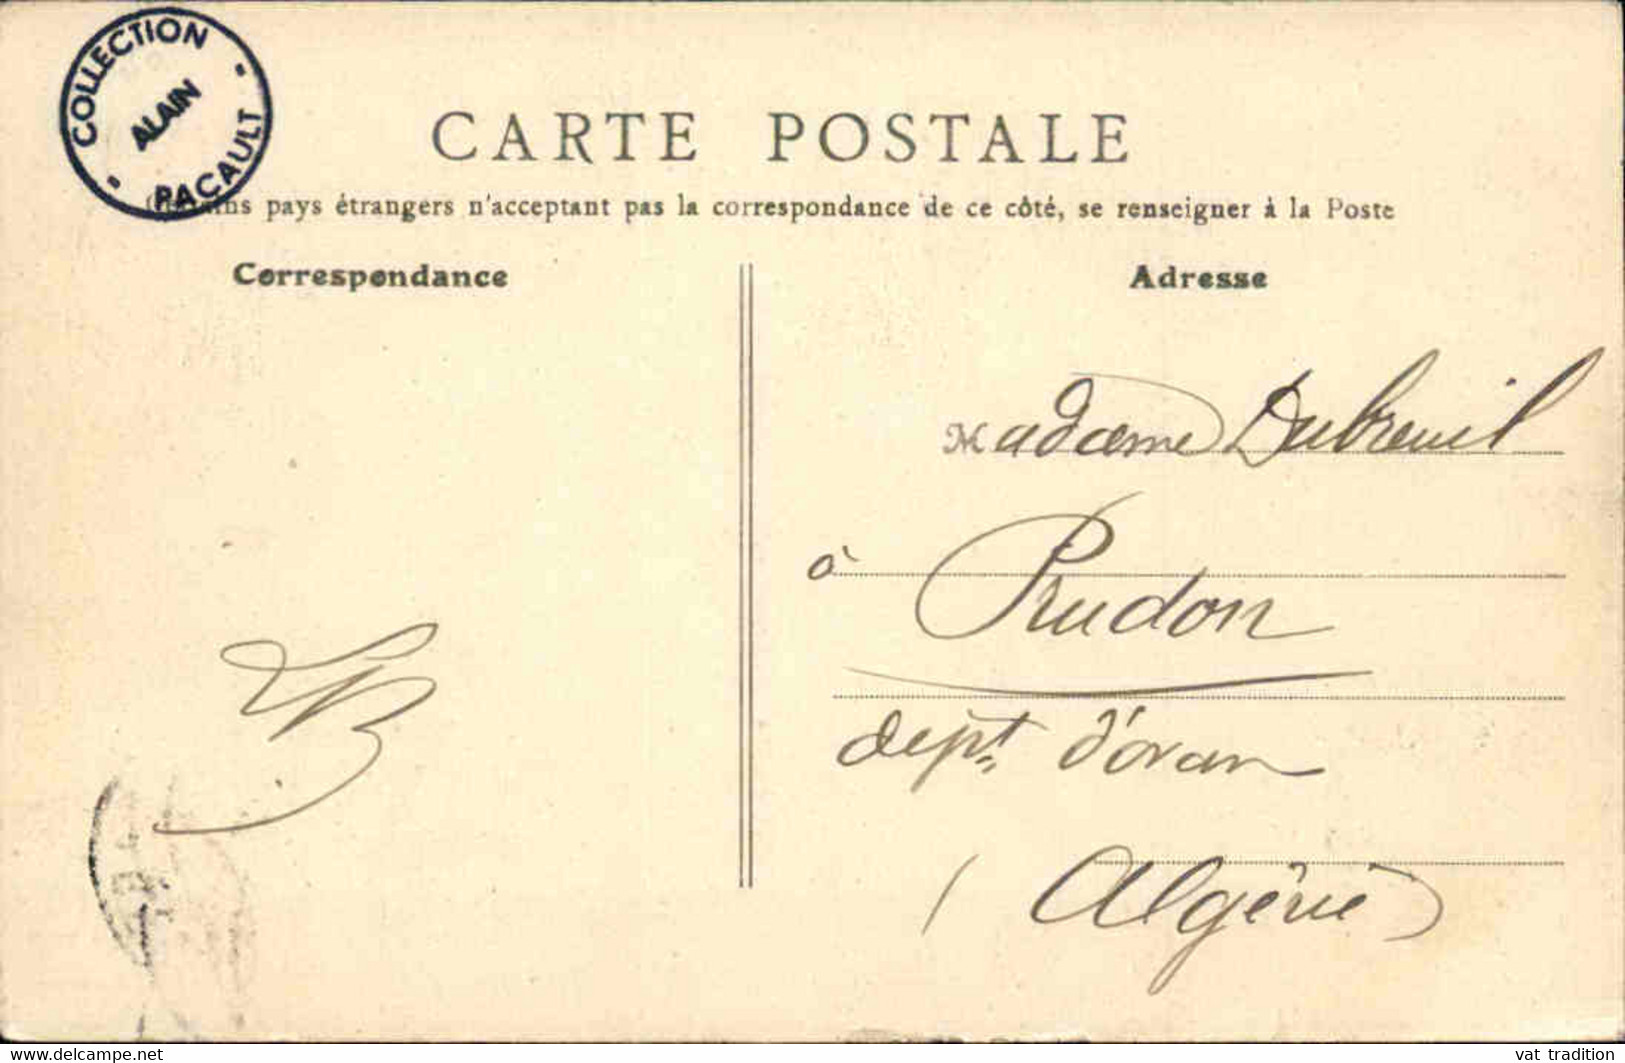 COLLECTION
ALAIN
PACAULT
CARTE POSTALE
Certains pays étrangers n'acceptant pas la correspondance de ce côté, se renseigner à la Poste
Correspondance
Adresse
Madame Dubreuil
à Prudon
dept d'Oran
(Algérie)
www.delcampe.net
vat_tradition